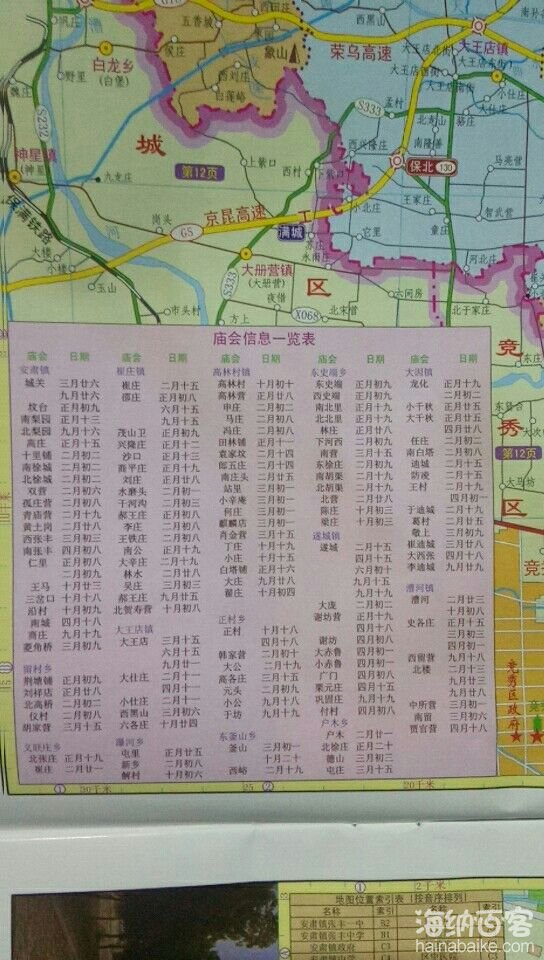 五香城
西黑山
荣乌高速
大王店镇
象山
侯庄
白龙乡
(白堡)
野里
西刘庄
白莲峪
S333
孟村
S232
城
第12页
上紫口
西村
下紫口
西兴隆庄
南隆善
保北
130
马亮营
神星镇
神星
九龙庄
岗头
京昆高速
G5
满城
小北庄
王家庄
智武营
它里
童庄
大楼
小楼
玉山
S333
大册营镇
(大册营)
夜借
区
六间房
河北庄
于家庄
市头村
方上
X068
北宋营
竞
秀
区
第12页
庙会信息一览表
庙会 日期 庙会 日期 庙会 日期 庙会 日期 庙会 日期
安肃镇 崔庄镇 高林村镇 东史端乡 大因镇
城关 三月廿六 崔庄 二月十五 高林村 十月初十 东史端 正月初九 龙化 正月十九
九月廿六 邵庄 正月初八 高林营 正月廿八 西史端 正月初二 二月初二
坟台 正月初九 六月十五 申庄 二月初二 南北里 正月十九 小千秋 正月廿五
南梨园 正月十三 九月十五 马庄 二月初八 北北里 正月十九 大千秋 正月廿五
北梨园 九月十六 茂山卫 正月初九 冯庄 二月初八 林庄 正月廿八
高庄 正月十五 兴隆庄 正月十二 田林铺 正月十一 下河西 二月初九 任庄 二月初二
十里铺 二月初二 沙口 正月十三 袁家坟 二月十四 南营 三月十五 南白塔 二月初八
南徐城 二月初二 商平庄 正月十九 郎五庄 二月十四 东徐庄 二月初九 迪城 二月十五
北徐城 二月初二 刘庄 正月廿八 南庄头 二月廿五 南胡渠 二月十九 防凌 二月十五
双营 二月初六 水磨头 二月初二 站里 三月初一 北胡渠 二月十一 王村 二月十九
孤庄营 二月初八 干河沟 二月初三 小辛庵 三月初一 北营 二月廿八 四月初一
青庙营 二月十九 郝王庄 正月初八 何庄 三月初一 陈庄 十月初三 于迪城 二月十九
黄土岗 二月廿八 李庄 二月初八 麒麟店 三月初一 梁庄 十月初三 葛村 二月廿五
西张丰 三月初三 王铁庄 二月初八 肖金营 三月十三 遂城镇 敬上 三月初九
南张丰 四月初八 南公 正月十九 丁庄 十月十九 遂城 二月十五 崔迪城 三月廿三
仁里 正月初八 大辛庄 二月十九 小庄 十月十五 四月十五 大西张 四月十八
二月初九 林水 二月廿八 白塔铺 正月十六 六月初十 李迪城 九月十九
王马 十月廿三 吴庄 三月初三 大庄 九月廿八 九月十七
三岔口 十月十八 郝王庄 九月初九 翟庄 十月初四 九月廿九 漕河镇
沿村 十月初九 北贺寿营 十月初八 大庞 二月初二 漕河 二月廿三
南城 四月初八 正村乡 谢坊营 正月十九 十月初八
商庄 九月十九 大王店镇 正村 十月十八 四月十九 史各庄 正月十五
菱角桥 三月初三 大王店 三月十五 四月十八 谢坊 四月初八 三月初三
六月十五 韩家营 二月初十 大赤鲁 四月初一 四月初三
留村乡 九月十九 大公 二月十九 小赤鲁 四月初一 西留营 九月十九
荆塘铺 正月初九 大仕庄 二月十一 高各庄 三月十五 广门 四月初八 北楼 二月廿三
刘祥店 正月廿八 四月十一 元头 二月初九 栗元庄 四月十五 三月初一
北高桥 二月初二 小仕庄 二月十一 小公 九月初九 巩固庄 九月十九
仪村 二月初八 西黑山 三月初六 于坊 九月十九 付村 四月初八 中所营 三月初一
胡家营 三月十五 六各庄 十月廿四 户木乡 南留 三月初六
东釜山乡 户木 二月廿一 贾官营 四月十八
义联庄乡 瀑河乡 釜山 三月初一 北徐庄 正月二十
北张庄 正月十九 屯里 正月廿五 十月二十 德山 三月初三
崔庄 二月廿一 新乡 二月初八 西峪 二月十九 屯庄 三月十五
解村 十月初六
竞秀区政府
① 20千米 25 ② 20千米
① 2千米
地图位置索引表 [按音序排列]
名称 索引 名称 索引
安肃镇张丰一中 B2
安肃镇张丰中学 B1
安肃镇政府 C3
海纳百客
hainabaike.com